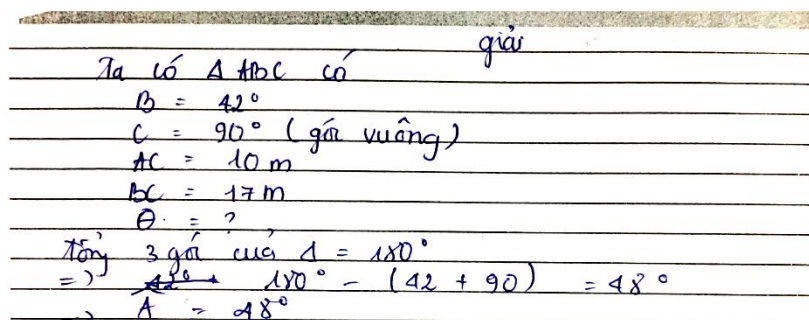 giải
Ta có Δ ABC có
B = 42°
C = 90° (góc vuông)
AC = 10 m
BC = 17 m
Θ = ?
tổng 3 góc của Δ = 180°
=) 180° - (42 + 90) = 48°
=) A = 48°